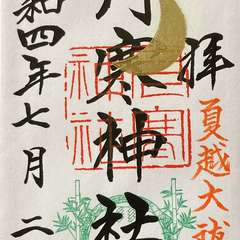 拝
夏越大祓
月寒神社
月寒
神社
和四年七月二